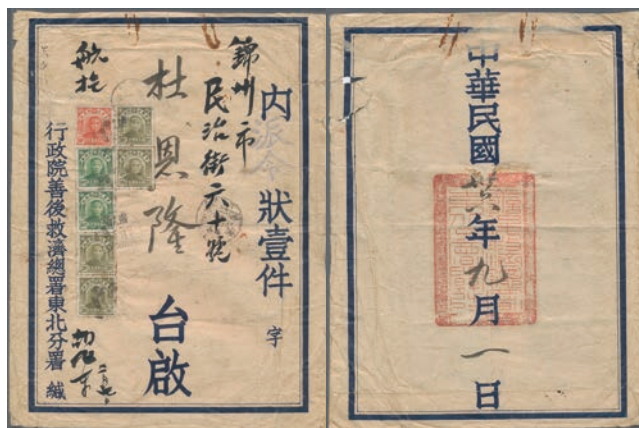 內派令狀壹件 字
錦州市
民治街六十號
杜恩隆
台啟
航掛
行政院善後救濟總署東北分署 緘
中華民國卅六年九月一日